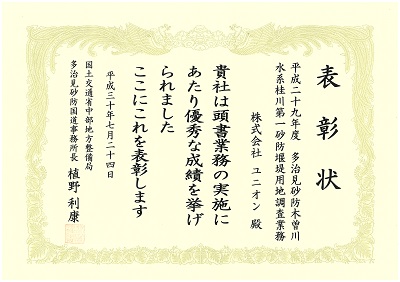 表彰状
平成二十九年度　多治見砂防木曽川
水系桂川第一砂防堰堤用地調査業務
株式会社　ユニオン　殿
貴社は頭書業務の実施に
あたり優秀な成績を挙げ
られました
ここにこれを表彰します
平成三十年七月二十四日
国土交通省中部地方整備局
多治見砂防国道事務所長　植野　利康